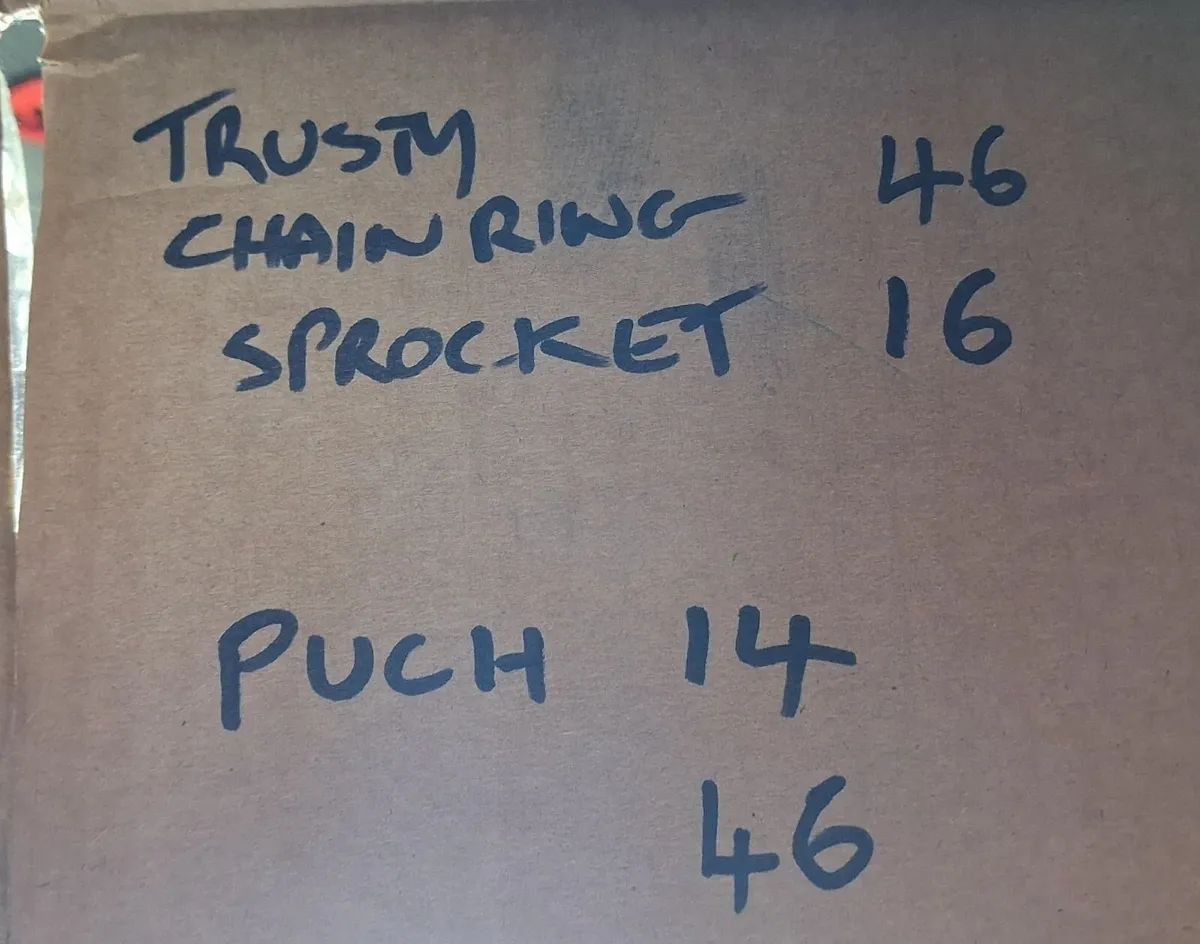 TRUSTY
CHAIN RING 46
SPROCKET 16
PUCH 14
46